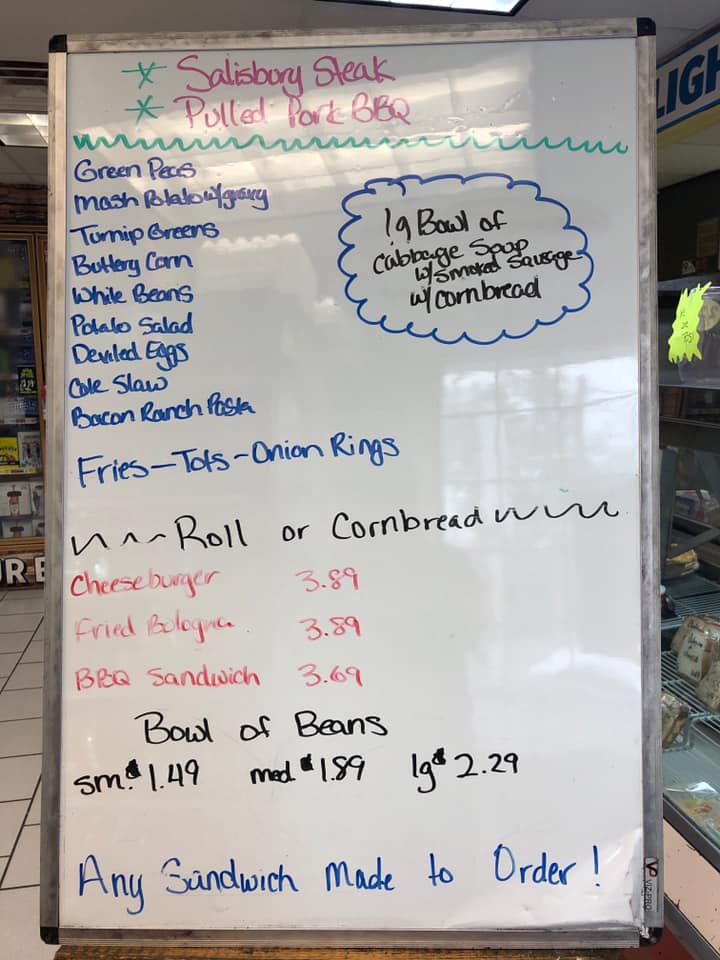 * Salisbury Steak
* Pulled Pork BBQ
Green Peas
Mash Potato w/gravy
Turnip Greens
Buttery Corn
White Beans
Potato Salad
Deviled Eggs
Cole Slaw
Bacon Ranch Pasta
lg Bowl of
Cabbage Soup
w/Smoked Sausage
w/cornbread
Fries-Tots-Onion Rings
Roll or Cornbread
Cheeseburger 3.89
Fried Bologna 3.89
BBQ Sandwich 3.69
Bowl of Beans
sm. $1.49 med $1.89 lg $2.29
Any Sandwich Made to Order!
LIGH
VIZ-PRO